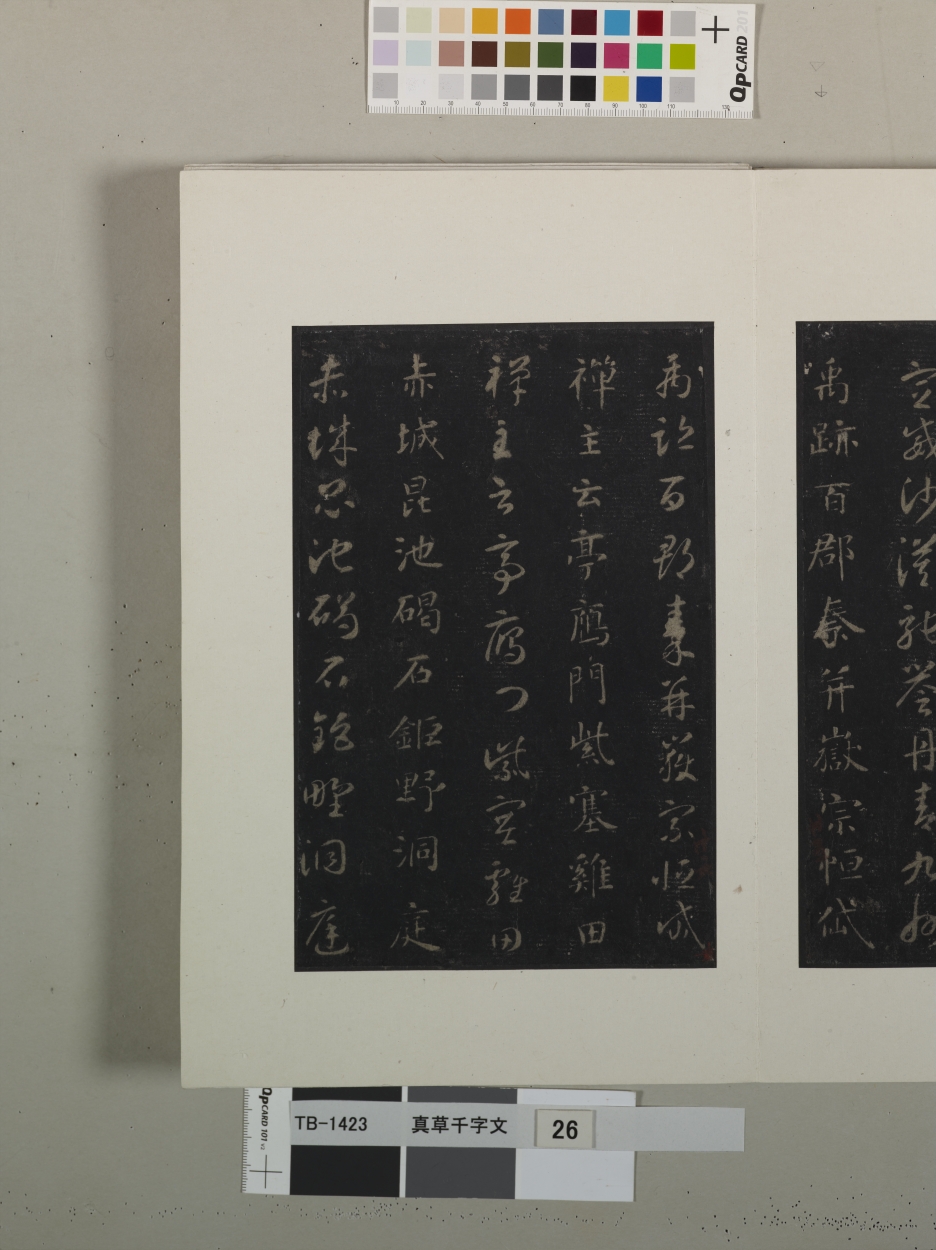 QPCARD 201
宣威沙漠馳譽丹青九州
禹跡百郡秦并嶽宗恒岱
禹跡百郡秦并嶽宗恒岱
禪主云亭鴈門紫塞雞田
禪主云亭鴈門紫塞雞田
赤城昆池碣石鉅野洞庭
赤城昆池碣石鉅野洞庭
QPCARD 101
TB-1423 真草千字文 26